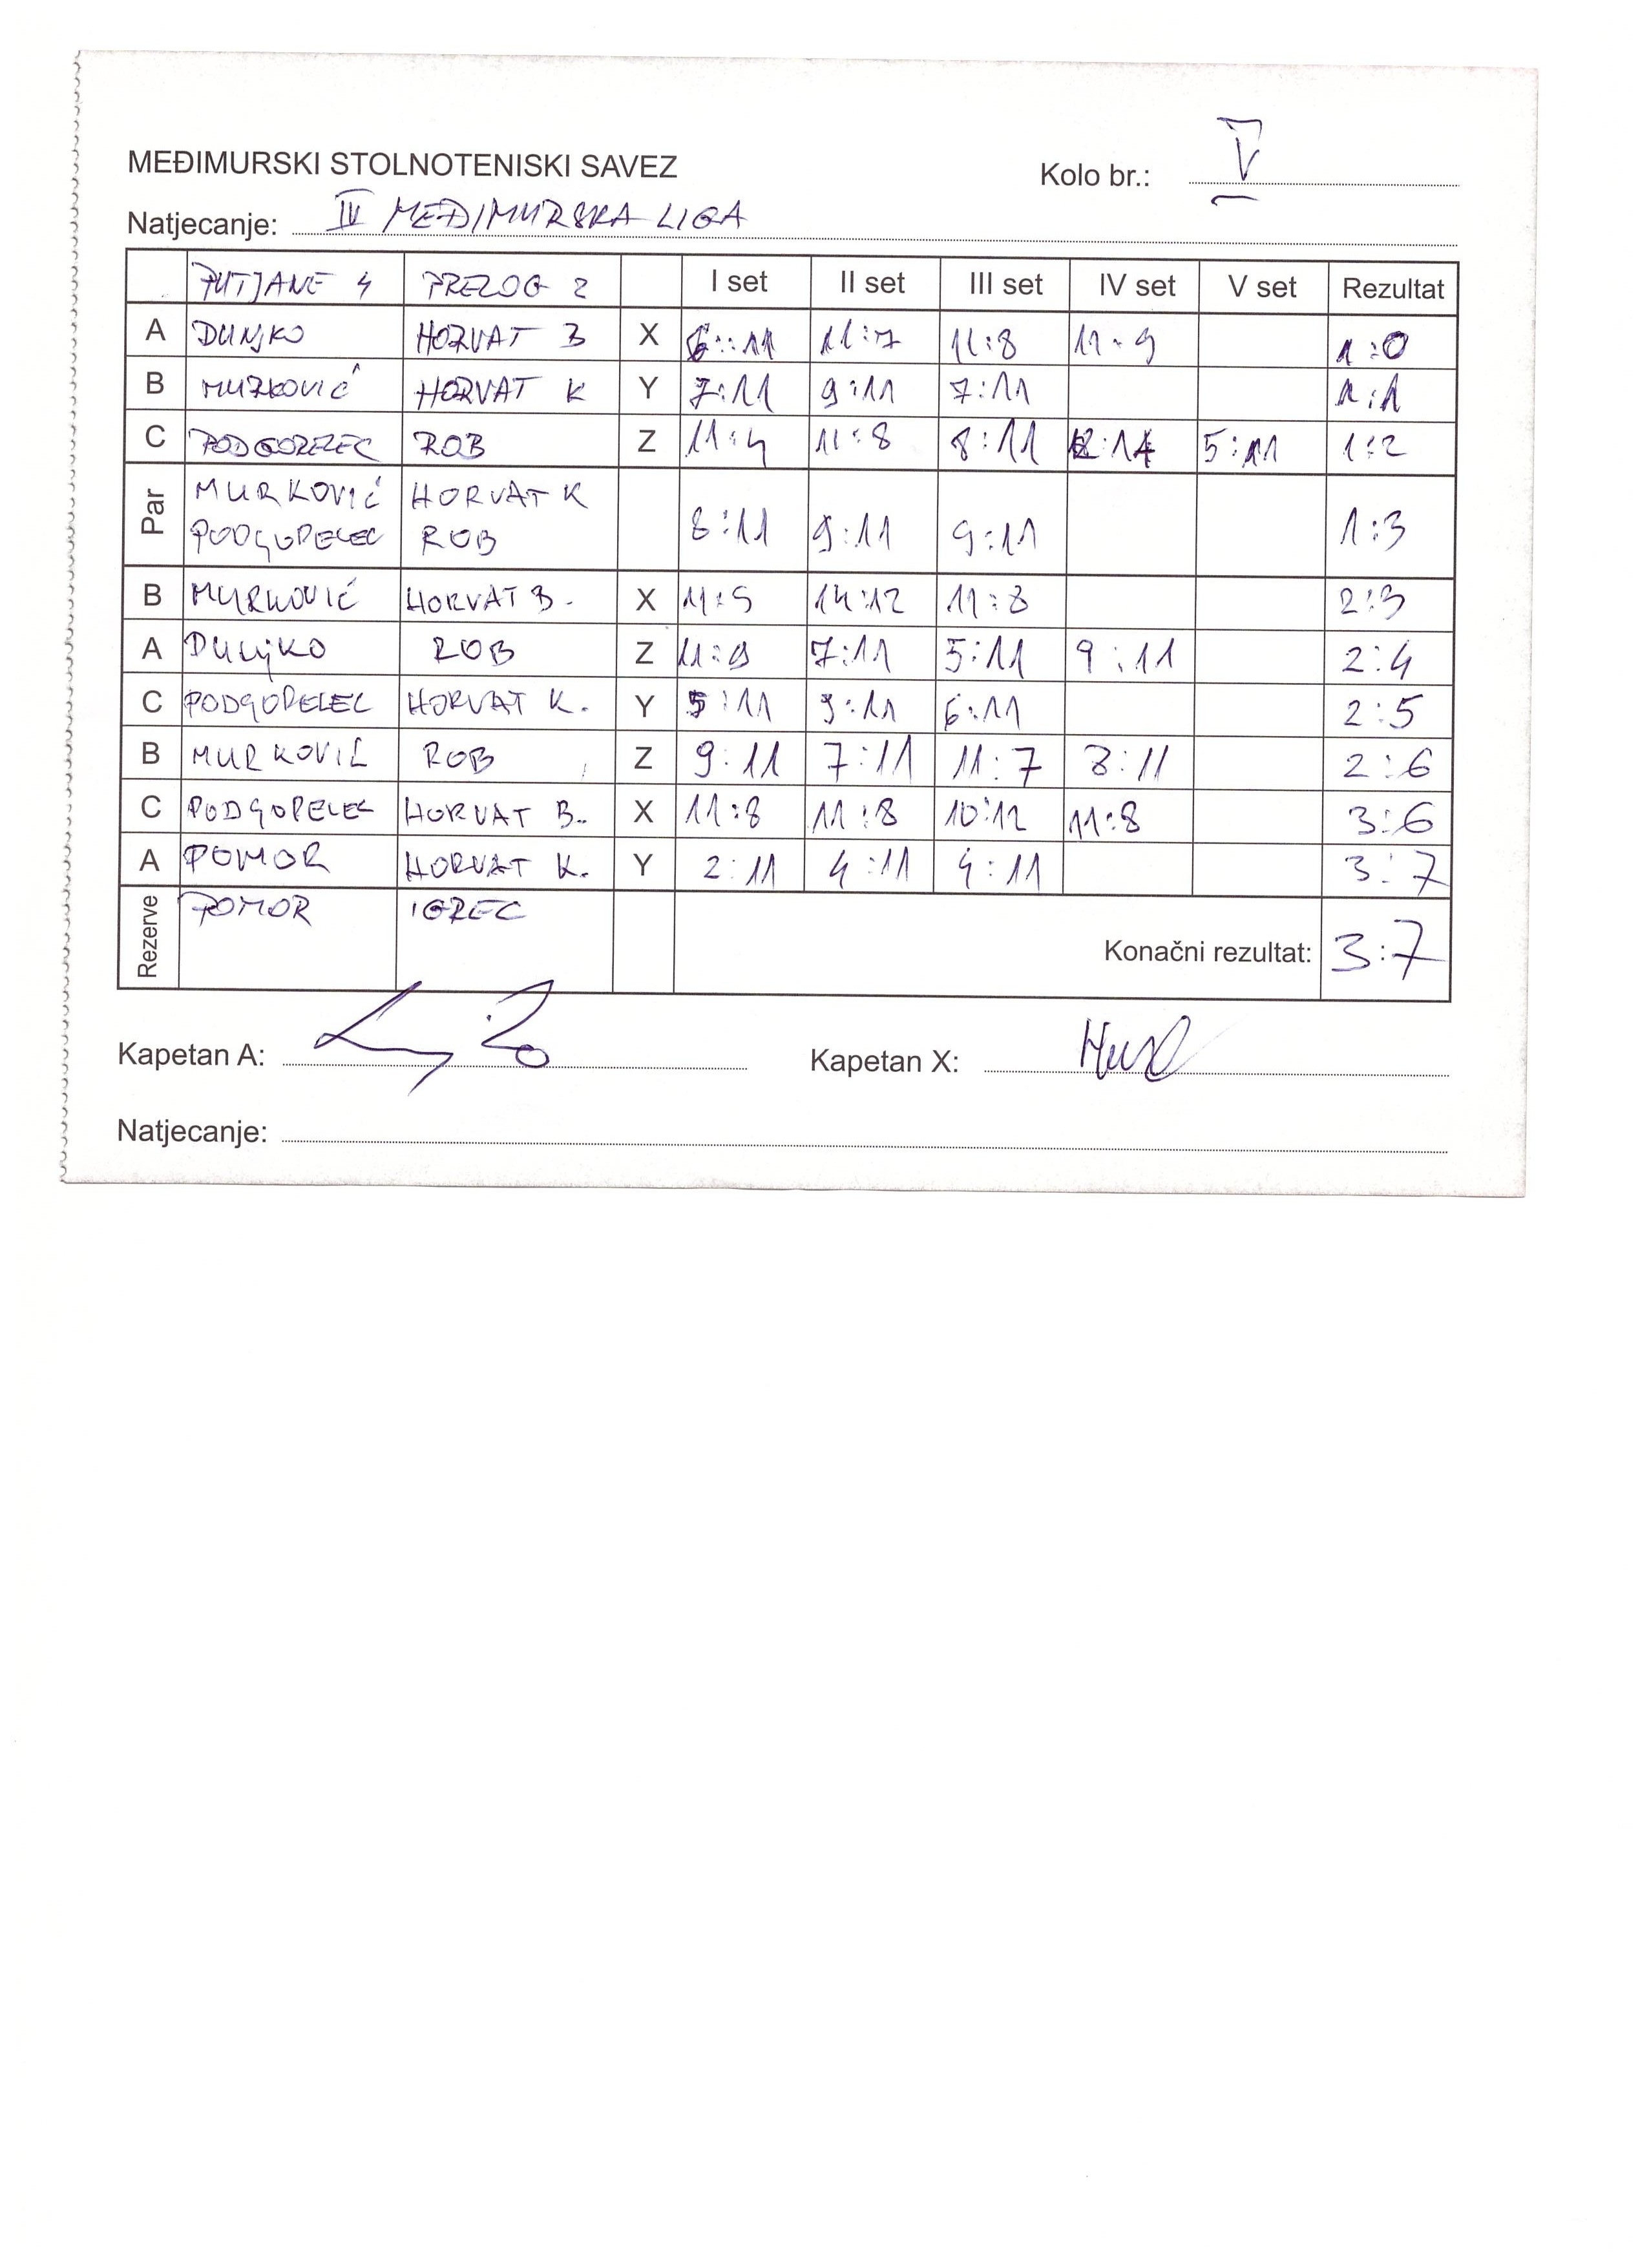 MEĐIMURSKI STOLNOTENISKI SAVEZ
Kolo br.: V
Natjecanje: IV MEĐIMURSKA LIGA
PUTJANE 4 PREZOG 2 I set II set III set IV set V set Rezultat
A DUNJKO HORVAT B X 6:11 11:7 11:8 11:9 1:0
B MURKOVIĆ HORVAT K Y 7:11 9:11 7:11 1:1
C PODGORELEC ROB Z 11:4 11:8 8:11 12:14 5:11 1:2
Par MURKOVIĆ HORVAT K
PODGORELEC ROB 8:11 9:11 9:11 1:3
B MURKOVIĆ HORVAT B. X 11:5 14:12 11:8 2:3
A DUNJKO ROB Z 11:9 7:11 5:11 9:11 2:4
C PODGORELEC HORVAT K. Y 5:11 9:11 6:11 2:5
B MURKOVIĆ ROB Z 9:11 7:11 11:7 8:11 2:6
C PODGORELEC HORVAT B. X 11:8 11:8 10:12 11:8 3:6
A POMOR HORVAT K. Y 2:11 4:11 4:11 3:7
Rezerve POMOR IGREC
Konačni rezultat: 3:7
Kapetan A: Kapetan X:
Natjecanje: